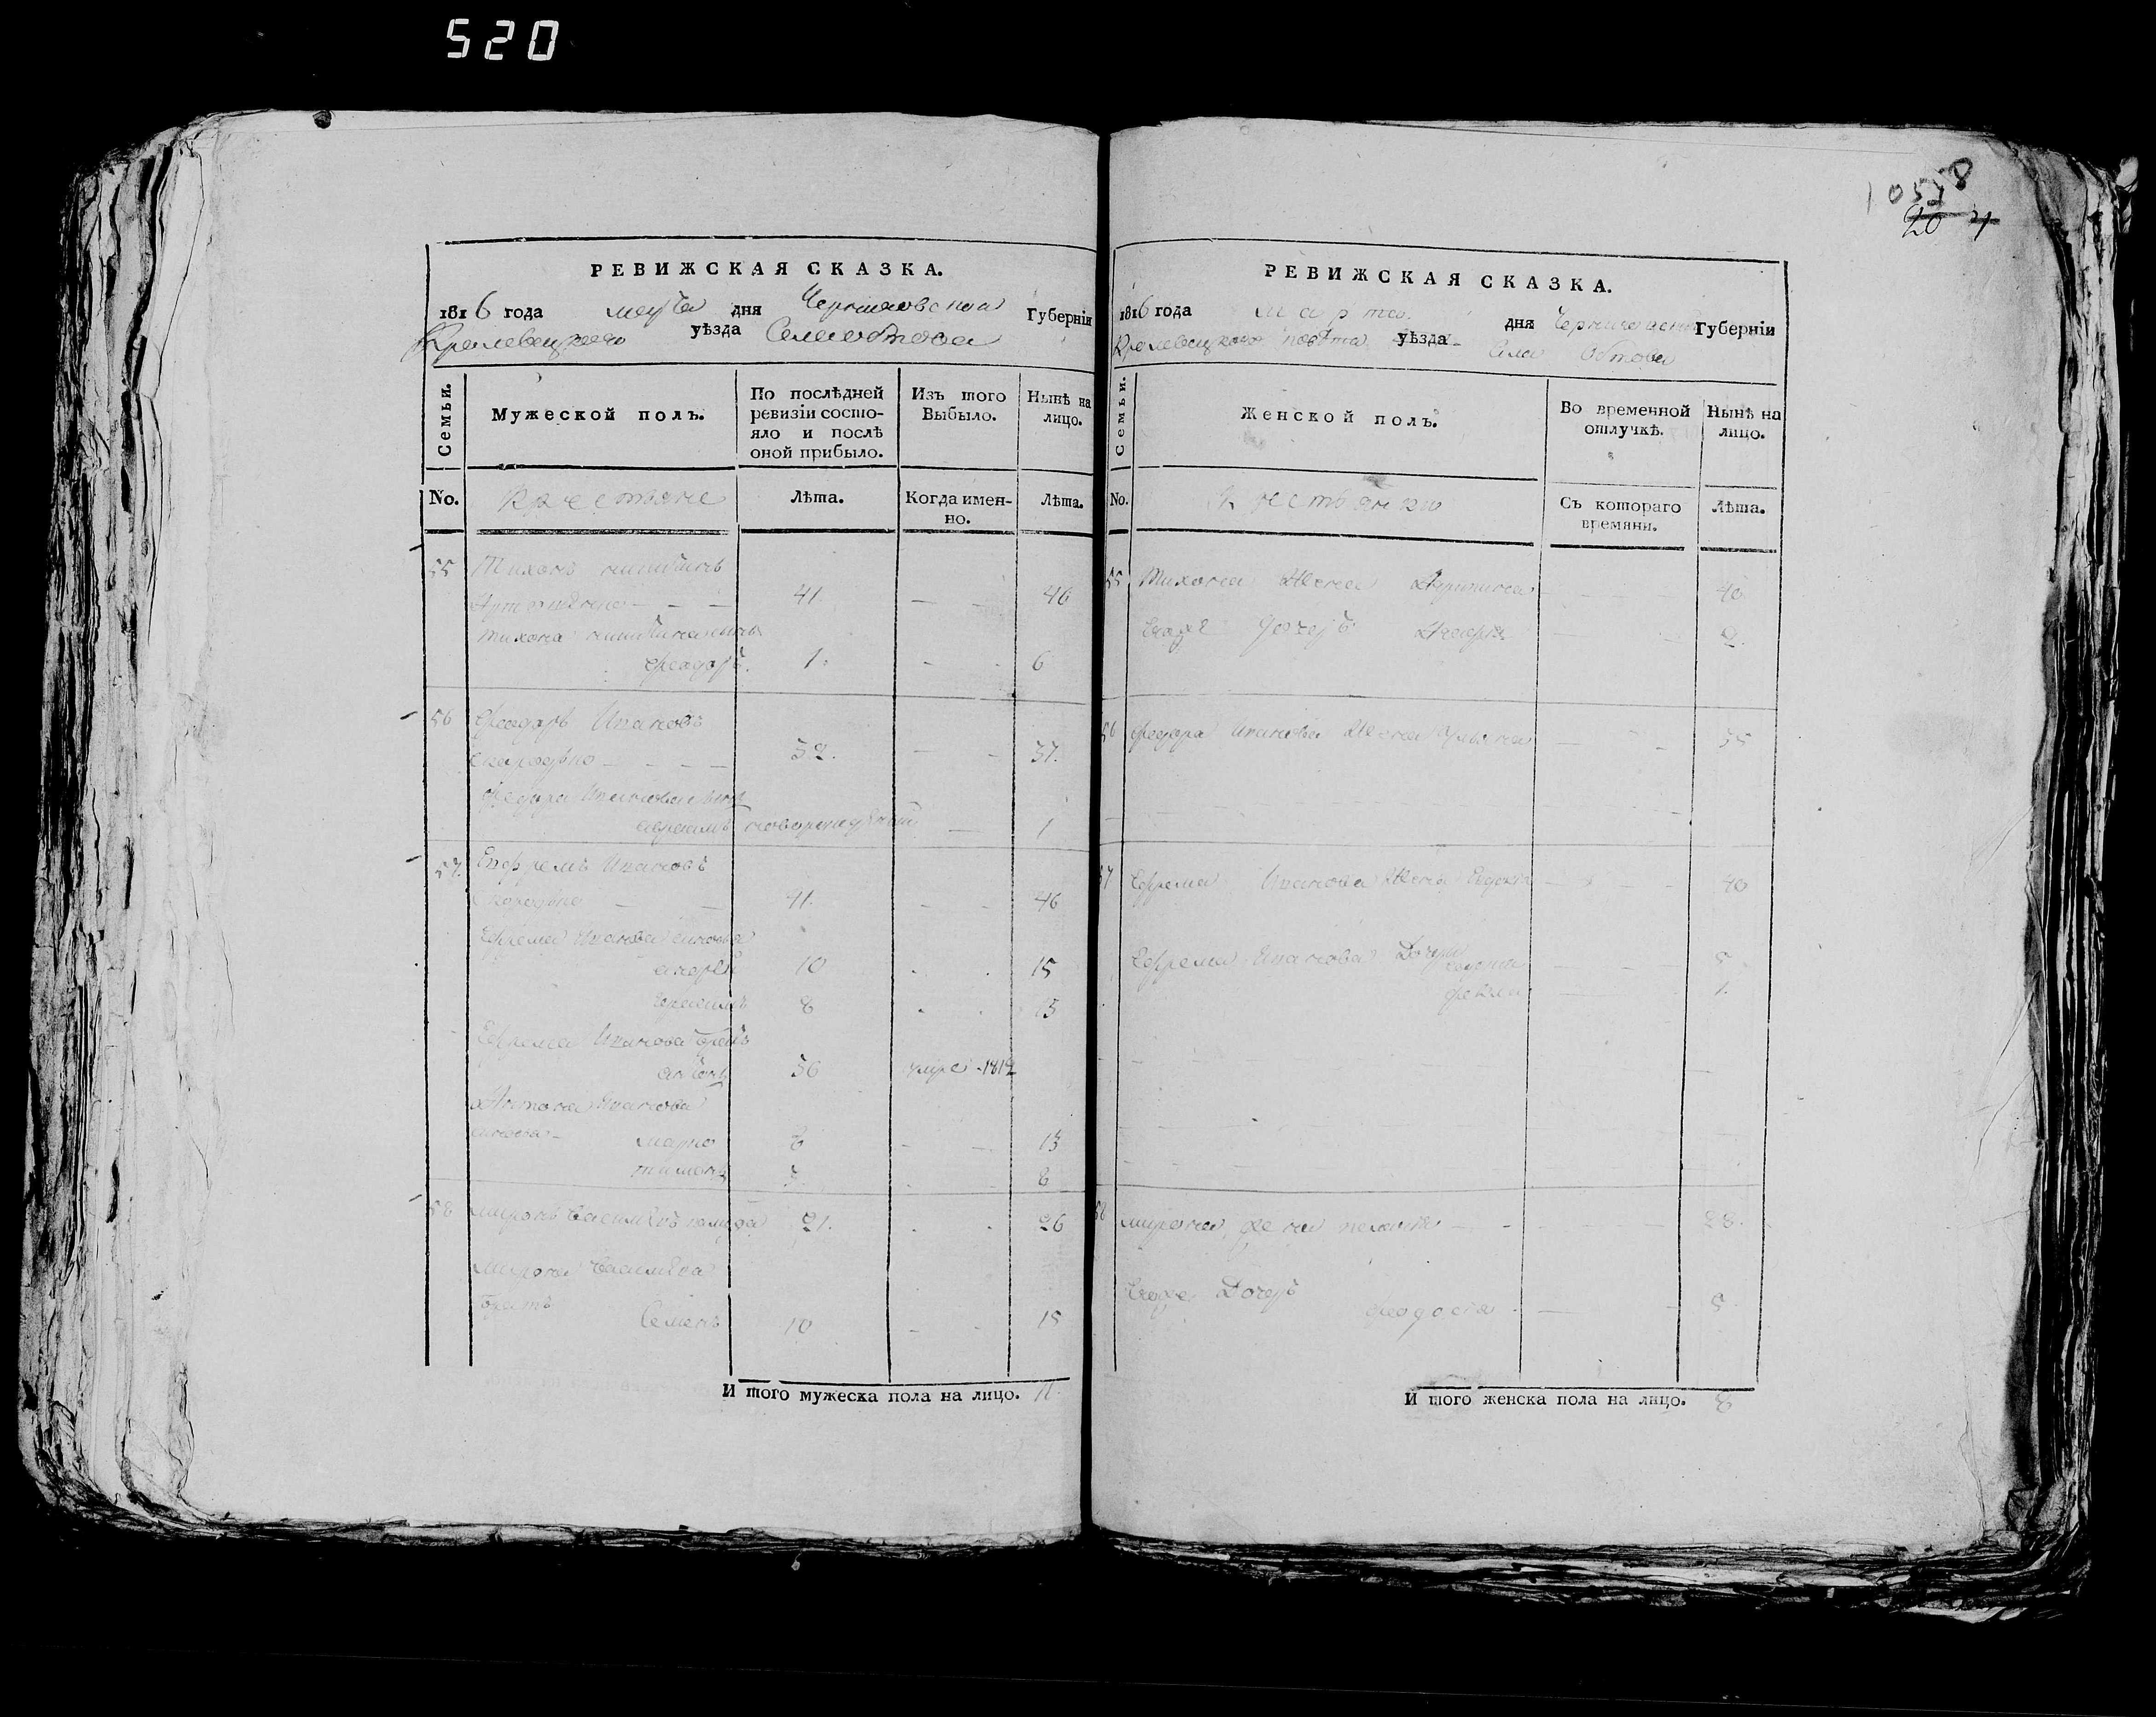 520
1058
20 4
РЕВИЖСКАЯ СКАЗКА.
1816 года марта дня Черниговской Губерніи
Кролевецкаго уѣзда Села обтова
Семьи.
Мужеской полъ.
По послѣдней ревизіи состояло и послѣ оной прибыло.
Изъ того Выбыло.
Нынѣ на лицо.
No. Крестьяне Лѣта. Когда именно. Лѣта.
55 Тихонъ никитинъ
41 46
Тихона никитина сынъ
Феодоръ. 1. 6
56 Феодоръ Ивановъ
32. 37.
Федора Иванова сынъ
новорожденный 1
57. Ефремъ Ивановъ
41. 46
Ефрема Иванова сыновья
андрей 10 15
Герасимъ 8 13
Ефрема Иванова братъ
антонъ 36 умре 1812
Антона Иванова
сыновья марко 8 13
тимофей 3 8
58 миронъ Васильевъ 21. 26
мирона Васильева
братъ
Семенъ 10 15
И того мужеска пола на лицо. 11.
РЕВИЖСКАЯ СКАЗКА.
1816 года марта дня Черниговской Губерніи
Кролевецкого повѣта уѣзда Села Обтова
Семьи.
Женской полъ.
Во временной отлучкѣ.
Нынѣ на лицо.
No. Крестьянки Съ котораго времяни. Лѣта.
55 Тихона Жена 40
Егоже дочерь 9.
56 Федора Иванова Жена Ульяна 35
57 Ефрема Иванова Жена Евдокія 40
Ефрема Иванова Дочери 5
Фекла 1.
58 мирона жена пелагея 28.
Егоже Дочерь
феодосія 5
И того женска пола на лицо. 8